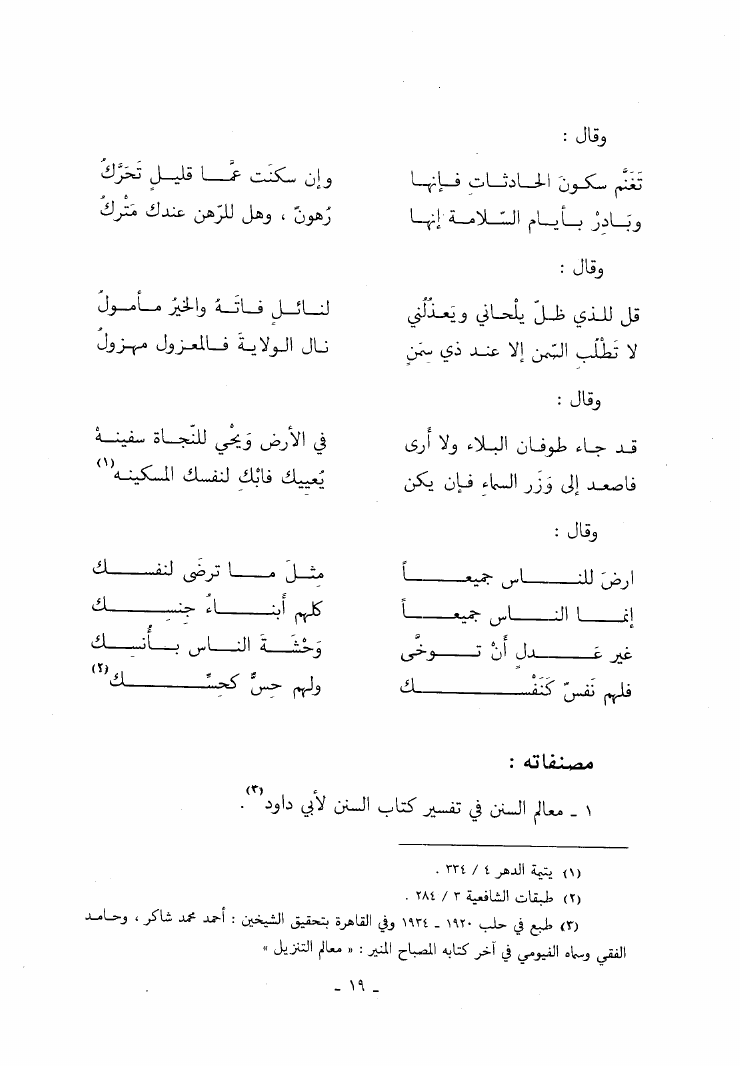 وقال :
تَغَنَّم سكونَ الحادثاتِ فإنها وإن سكنَت عمَّا قليلٍ تَحَرَّكُ
وبَادِرْ بأيام السّلامة إنها رُهونٌ ، وهل للرّهن عندك مَتْركُ
وقال :
قل للذي ظلّ يلْحاني ويَعذُلُني لنائلٍ فاتَهُ والخيرُ مأمولُ
لا تَطْلُبِ السّمن إلا عند ذي سِمَنٍ نال الولايةَ فالمعزول مهزولُ
وقال :
قد جاء طوفان البلاء ولا أرى في الأرض وَيحْي للنّجاة سفينهْ
فاصعد إلى وَزَر السماءِ فإن يكن يُعييك فابْكِ لنفسك المسكينه(١)
وقال :
ارضَ للناس جميعاً مثلَ ما ترضَى لنفسك
إنما الناس جميعاً كلهم أبناءُ جِنسِك
غير عَدلٍ أنْ توخَّى وَحْشَةَ الناس بأُنسِك
فلهم نَفسٌ كَنَفْسِك ولهم حسٌّ كحسِّك(٢)
مصنفاته :
١ ـ معالم السنن في تفسير كتاب السنن لأبي داود(٣) .
(١) يتيمة الدهر ٤ / ٣٣٤ .
(٢) طبقات الشافعية ٣ / ٢٨٤ .
(٣) طبع في حلب ١٩٢٠ ـ ١٩٣٤ وفي القاهرة بتحقيق الشيخين : أحمد محمد شاكر ، وحامد
الفقي وسماه الفيومي في آخر كتابه المصباح المنير : « معالم التنزيل »
ـ ١٩ ـ